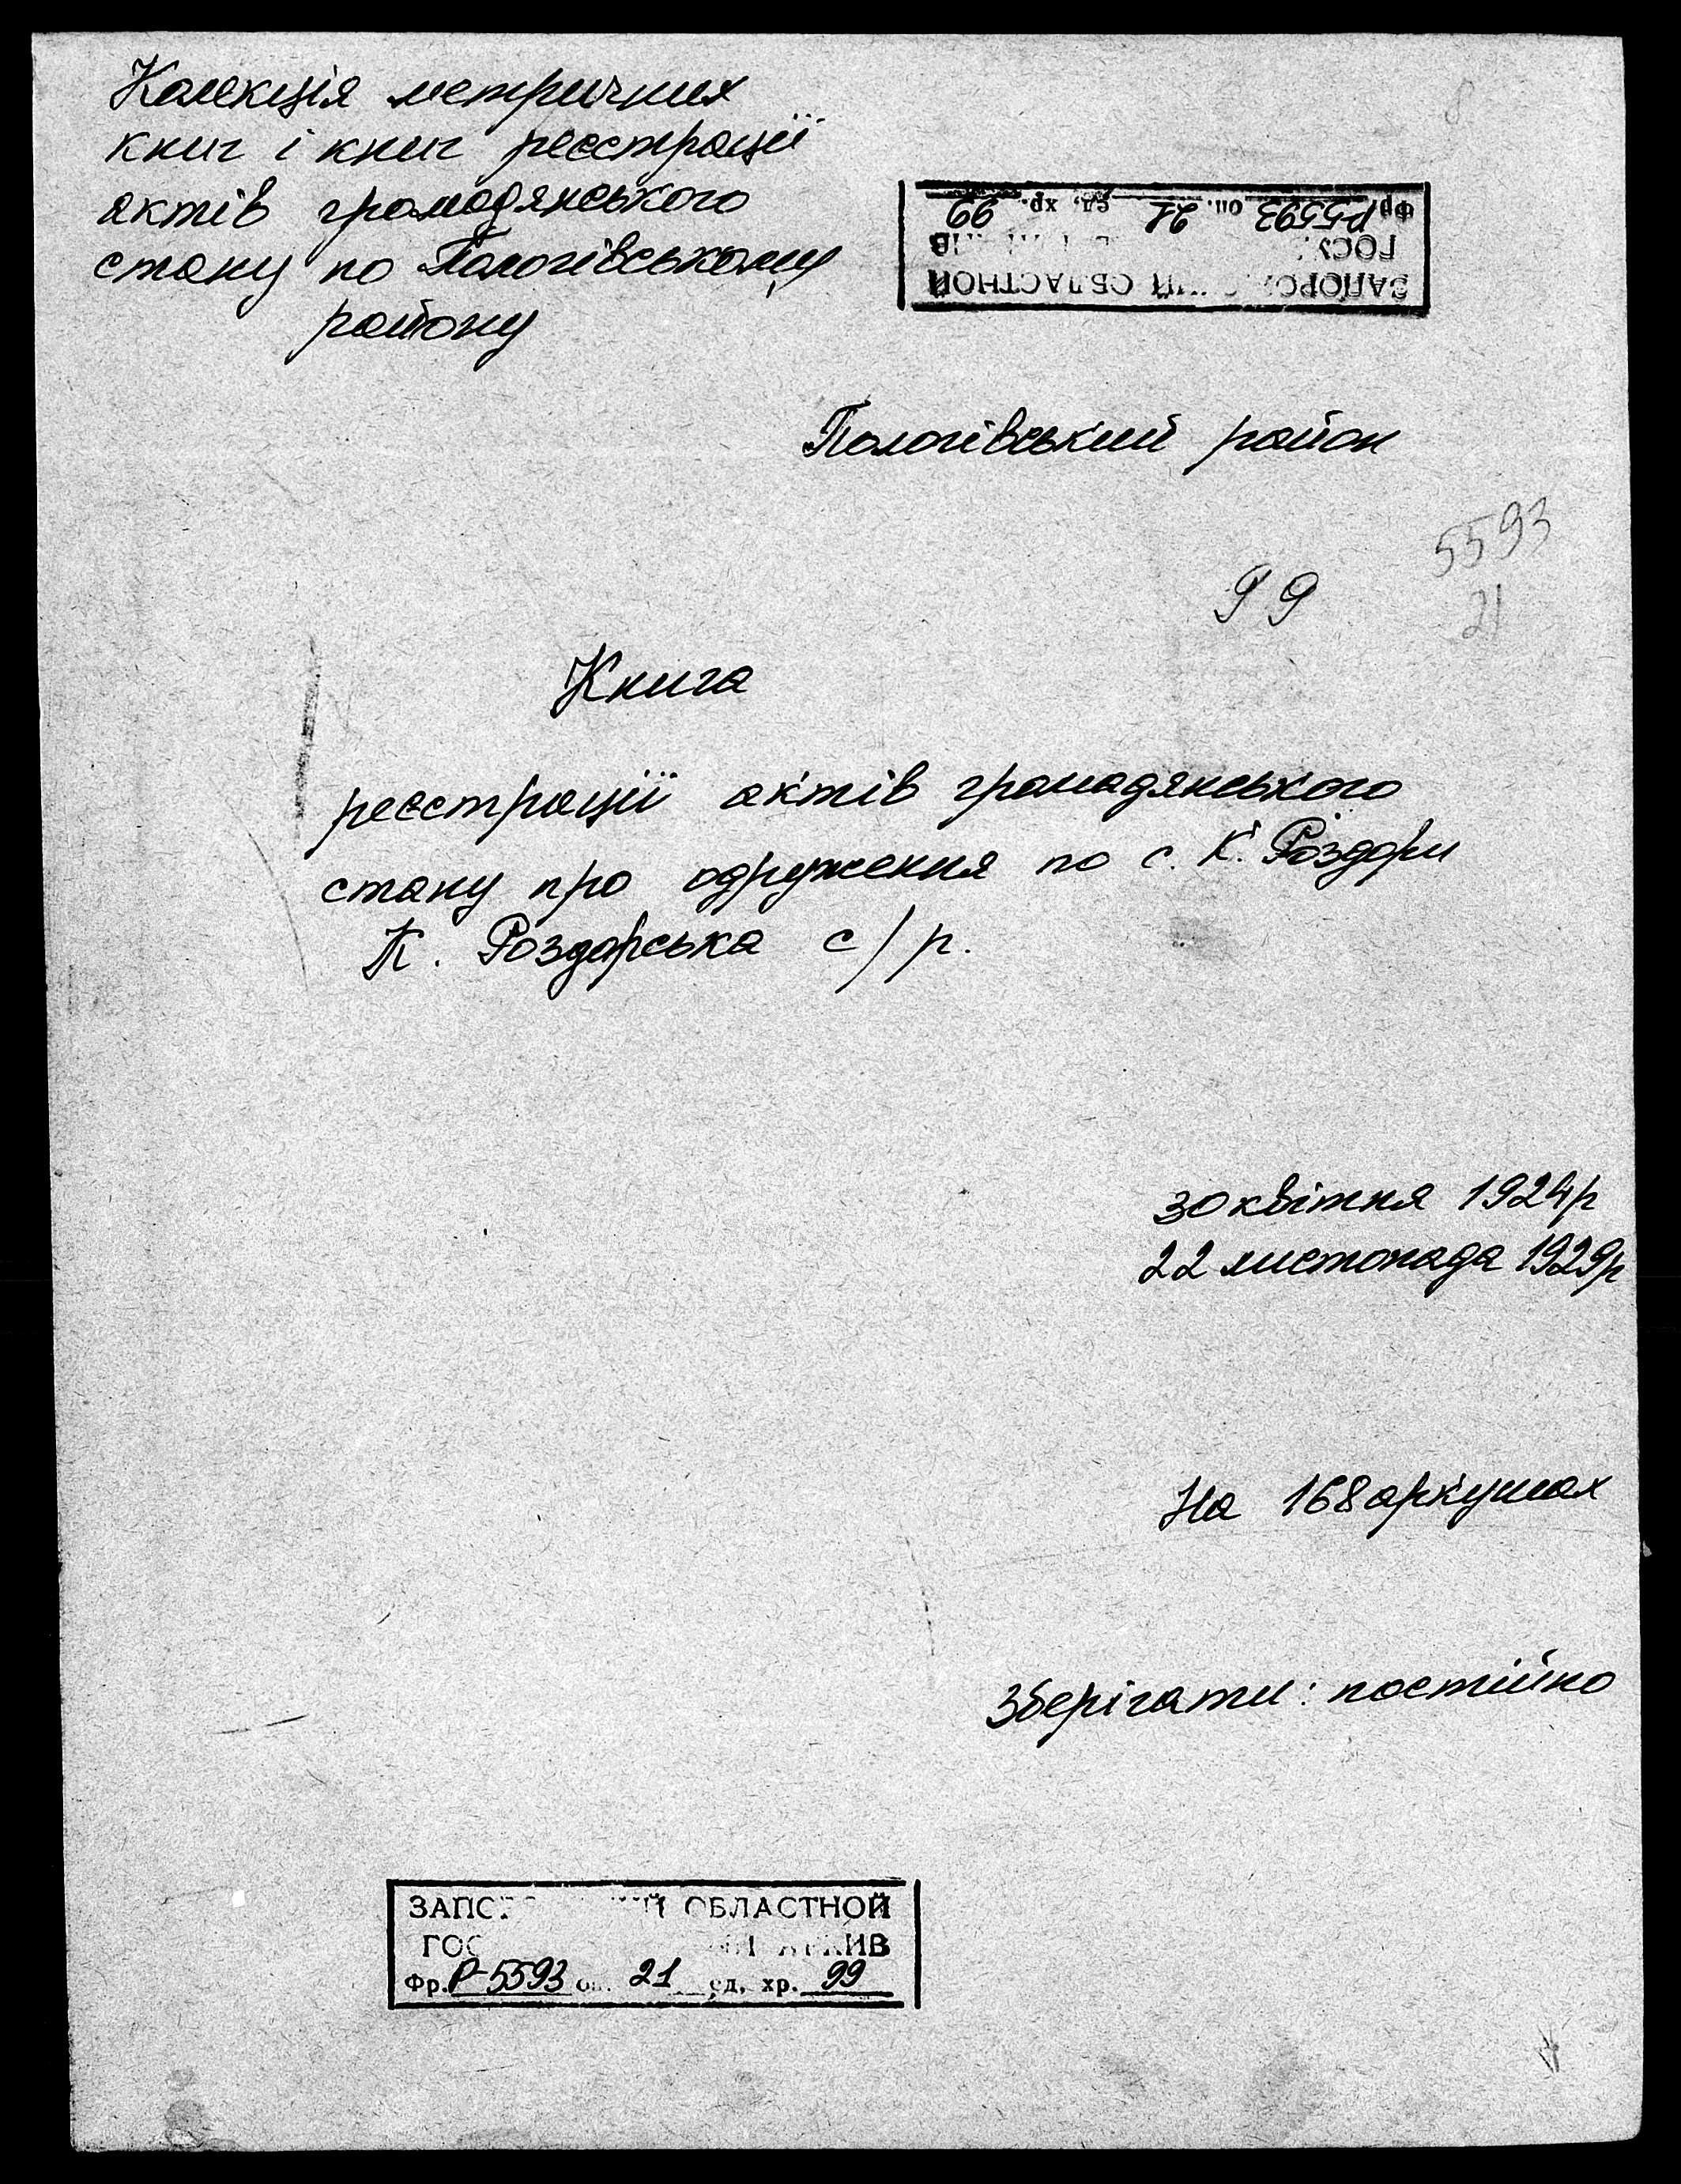 Колекція метричних
книг і книг реєстрації
актів громадянського
стану по Пологівському
району
ОБЛАСТНОЙ
Фр. Р-5593 оп. 21 ед. хр. 99
Пологівський район
5593
99
21
Книга
реєстрації актів громадянського
стану про одруження по с. К. Роздори
К. Роздорська с/р.
30 квітня 1924р
22 листопада 1929р
На 168 аркушах
Зберігати: постійно
ОБЛАСТНОЙ
АРХИВ
Фр. Р-5593 оп. 21 ед. хр. 99